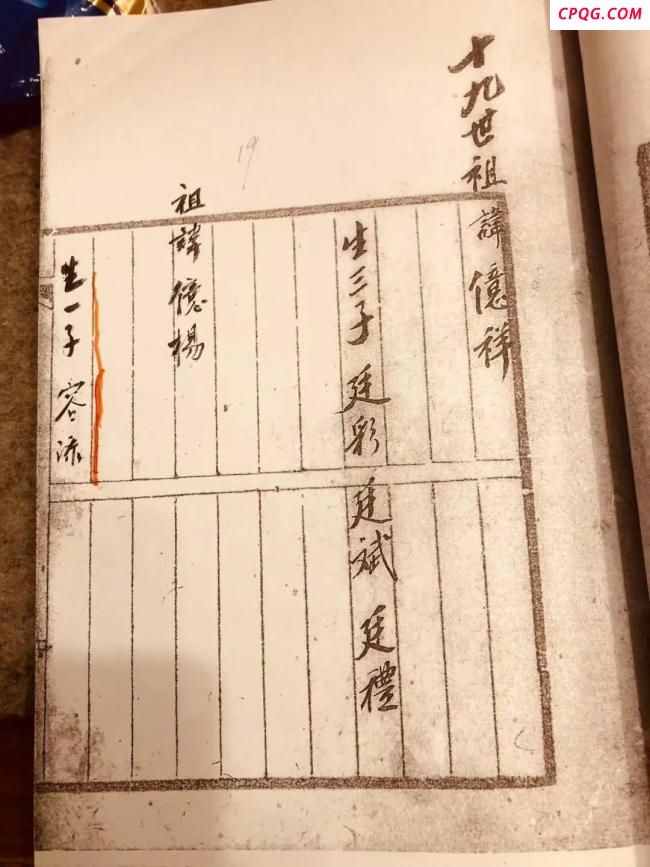 CPQG.COM
十九世祖諱億祥
生三子 廷彩 廷斌 廷禮
19
祖諱億楊
生一子 容添